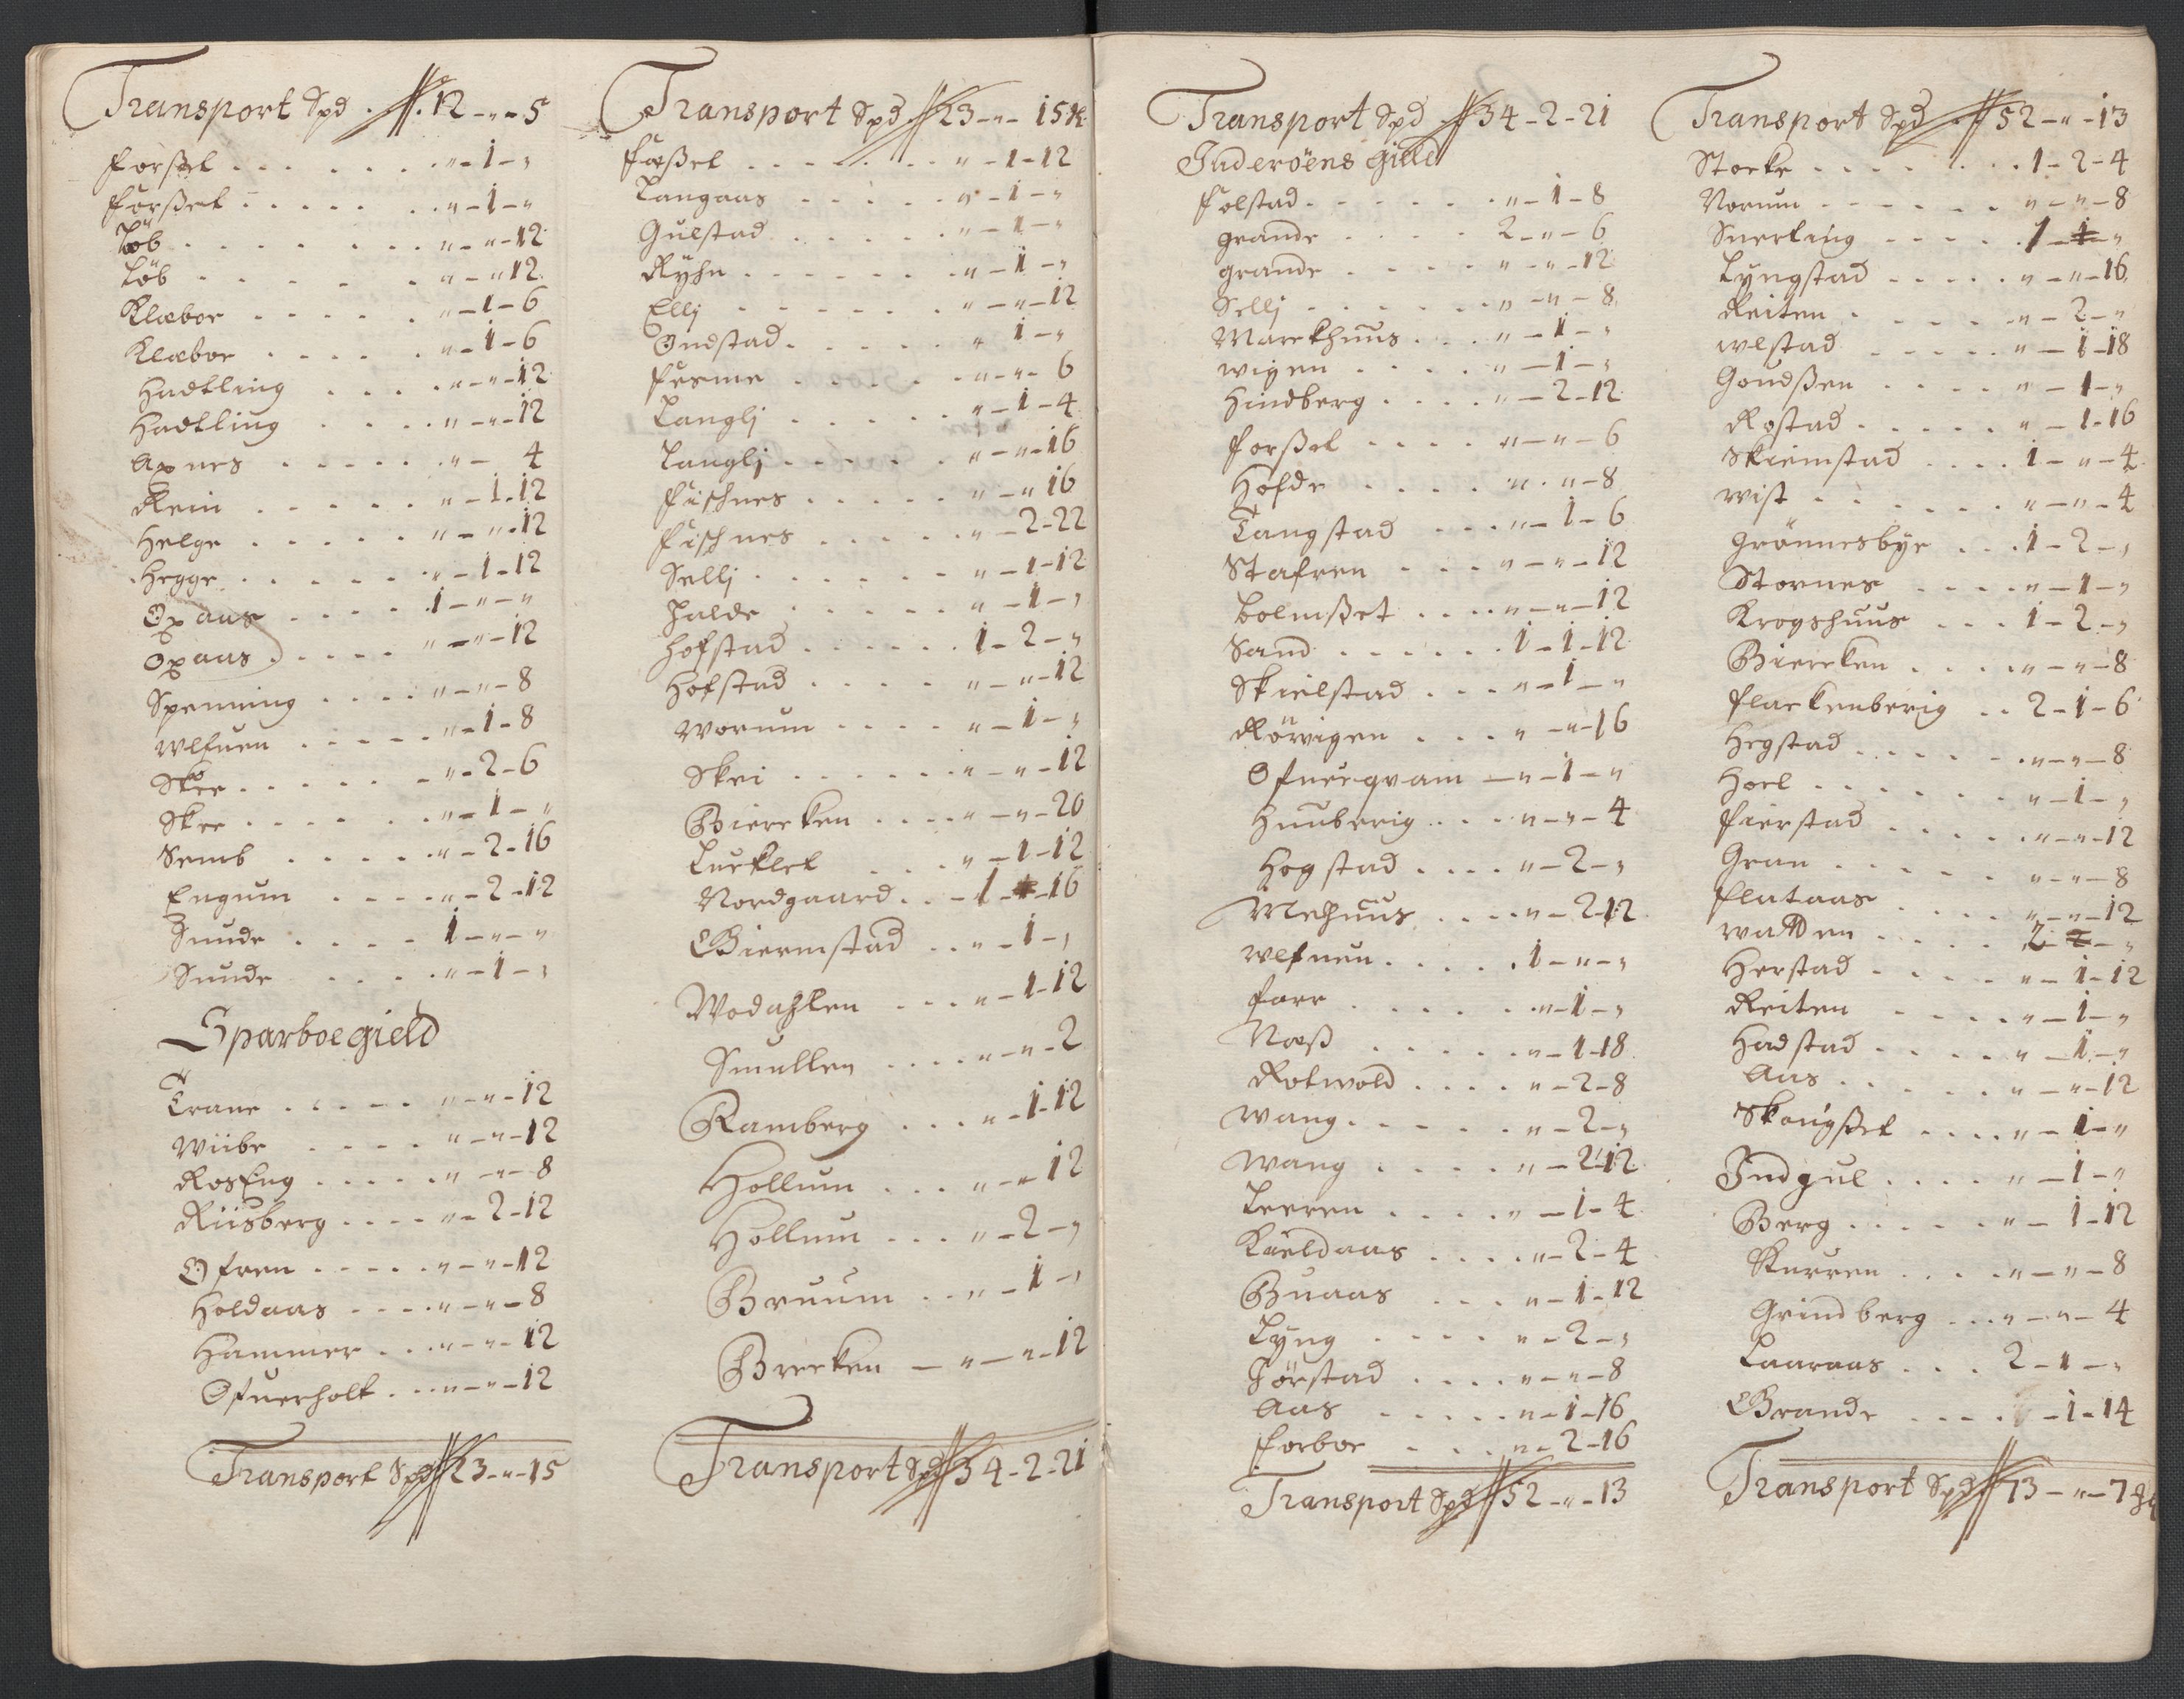 Transport Spd . 12 - „ - 5
Forßel . . . . . „ - 1 - „
Forßel . . . . . „ - 1 - „
Löb . . . . . „ - „ - 12
Löb . . . . . „ - „ 12
Klæboe . . . . . „ - 1 - 6
Klæboe . . . . . „ - 1 - 6
Hadtling . . . . „ - „ - 12
Hadtling . . . . „ - „ - 12
Axnes . . . . . „ - 4
Rein . . . . . „ - 1 - 12
Helge . . . . . „ - „ - 12
Hegge . . . . . „ - 1 - 12
Opaas . . . . 1 - „ - „
Opaas . . . . „ - „ - 12
Spenning . . . . „ - „ - 8
Wlfuen . . . . . „ - 1 - 8
Skee . . . . . „ - 2 - 6
Skee . . . . . „ - 1 - „
Semb . . . . . „ - 2 - 16
Engum . . . . „ - 2 - 12
Suude . . . . 1 - „ - „
Suude . . . . „ - 1 - „
Sparboegield
Trane . . . . . „ - „ - 12
Wiibe . . . . „ - „ - 12
RosEng . . . . . „ - „ - 8
Riisberg . . . . „ - 2 - 12
Ofren . . . . . „ - „ - 12
Holdaas . . . . „ - „ - 8
Hammer . . . „ - „ - 12
Ofuerholt . . . „ - „ - 12
Transport Spd 23 - „ - 15
Transport Spd. 23 - „ - 15
Faßel . . . . . „ - 1 - 12
Langaas . . . . . „ - 1 - „
Gulstad . . . . . „ - 1 - „
Ryhn . . . . . . „ - 1 - „
Ellj . . . . . . „ - „ - 12
Ondstad . . . . . „ 1 - „
Fesme . . . . . „ - „ - 6
Langlj . . . . . „ - 1 - 4
Langlj . . . . . „ - „ - 16
Fischnes . . . . . „ - „ 16
Fischnes . . . . . „ - 2 - 22
Sellj . . . . . . „ - 1 - 12
Jalde . . . . . „ - 1 - „
Hofstad . . . . . 1 - 2 - „
Hofstad . . . . „ - „ - 12
Worum . . . . „ - 1 - „
Skei . . . . . . „ - „ - 12
Biercken . . . . „ - „ - 20
Lucklet . . . „ - 1 - 12
Nordgaard . . - 1 - 16
Biermstad . . „ - 1 - „
Wodahlen . . . „ - 1 - 12
Smullen . . . . „ - „ - 2
Ramberg . . . „ - 1 - 12
Hollum . . . „ - „ 12
Hollum . . . „ - 2 - „
Bruum . . „ - 1 - „
Brecken - „ - „ - 12
Transport Spd 34 - 2 - 21
Transport Spd 34 - 2 - 21
Inderöens Gield
Folstad . . . . . „ - 1 - 8
Grande . . . . 2 - „ - 6
Grande . . . . „ - „ - 12
Sellj . . . . . „ - „ - 8
Marckhuus . . . „ - 1 - „
Wigen . . . . „ - 1 - „
Hindberg . . . . „ - 2 - 12
Forßel . . . . „ - „ - 6
Hofde . . . . . „ - „ - 8
Tangstad . . . „ - 1 - 6
Stafren . . . „ - „ - 12
Bolmßet . . . . „ - „ - 12
Sand . . . . . . 1 - 1 - 12
Skielstad . . . „ - 1 - „
Röwigen . . . „ - „ - 16
Ofuerqvam - „ - 1 - „
Huuberig . . . „ - „ - 4
Hogstad . . . . „ - 2 - „
Melhuus . . . . „ - 2 - 12
Wlfuen . . . . 1 - „ - „
Farr . . . . . „ - 1 - „
Næß . . . . . „ - 1 - 18
Rotwold . . . . „ - 2 - 8
Wang . . . . . „ - 2 - „
Wang . . . . „ - 2 - 12
Leeren . . . . „ - 1 - 4
Kieldaas . . . . „ - 2 - 4
Buaas . . . „ - 1 - 12
Lyng . . . . „ - 2 - „
Jörstad . . . . „ - „ - 8
Aas . . . . . „ - 1 - 16
Forboe . . . „ - 2 - 16
Transport Spd 52 - „ - 13
Transport Spd 52 - „ - 13
Stocke . . . . . . 1 - 2 - 4
Norum . . . . . „ - „ - 8
Snerting . . . . 1 - „
Lyngstad . . . . . „ - „ - 16
Reiten . . . . . „ - 2 - „
Wlstad . . . . . „ - 1 - 18
Gondßen . . . . „ - 1 - „
Rostad . . . . . „ - 1 - 16
Skiemstad . . . . 1 - „ - 4
Wist . . . . . . „ - „ - 4
Grönnesbye . . . 1 - 2 - „
Stornes . . . . „ - 1 - „
Krogshuus . . . 1 - 2 - „
Biercken . . . . „ - „ - 8
Flackenberig . . 2 - 1 - 6
Hegstad . . . . . „ - „ - 8
Hoel . . . . . . „ - 1 - „
Fierstad . . . . . „ - „ - 12
Gran . . . . . „ - „ - 8
Flataas . . . . „ - „ - 12
Watten . . . . 2 - „
Herstad . . . . „ - 1 - 12
Reiten . . . . „ - 1 - „
Hadstad . . . . „ - 1 - „
Aas . . . . . „ - „ - 12
Skougßel . . . . „ - 1 - „
Indgul . . . . „ - 1 - „
Berg . . . . . „ - 1 - 12
Kurren . . . . „ - „ - 8
Grindberg . . . „ - „ - 4
Laaraas . . . 2 - 1 - „
Brande . . . . - 1 - 14
Transport Spd. 73 - „ - 7